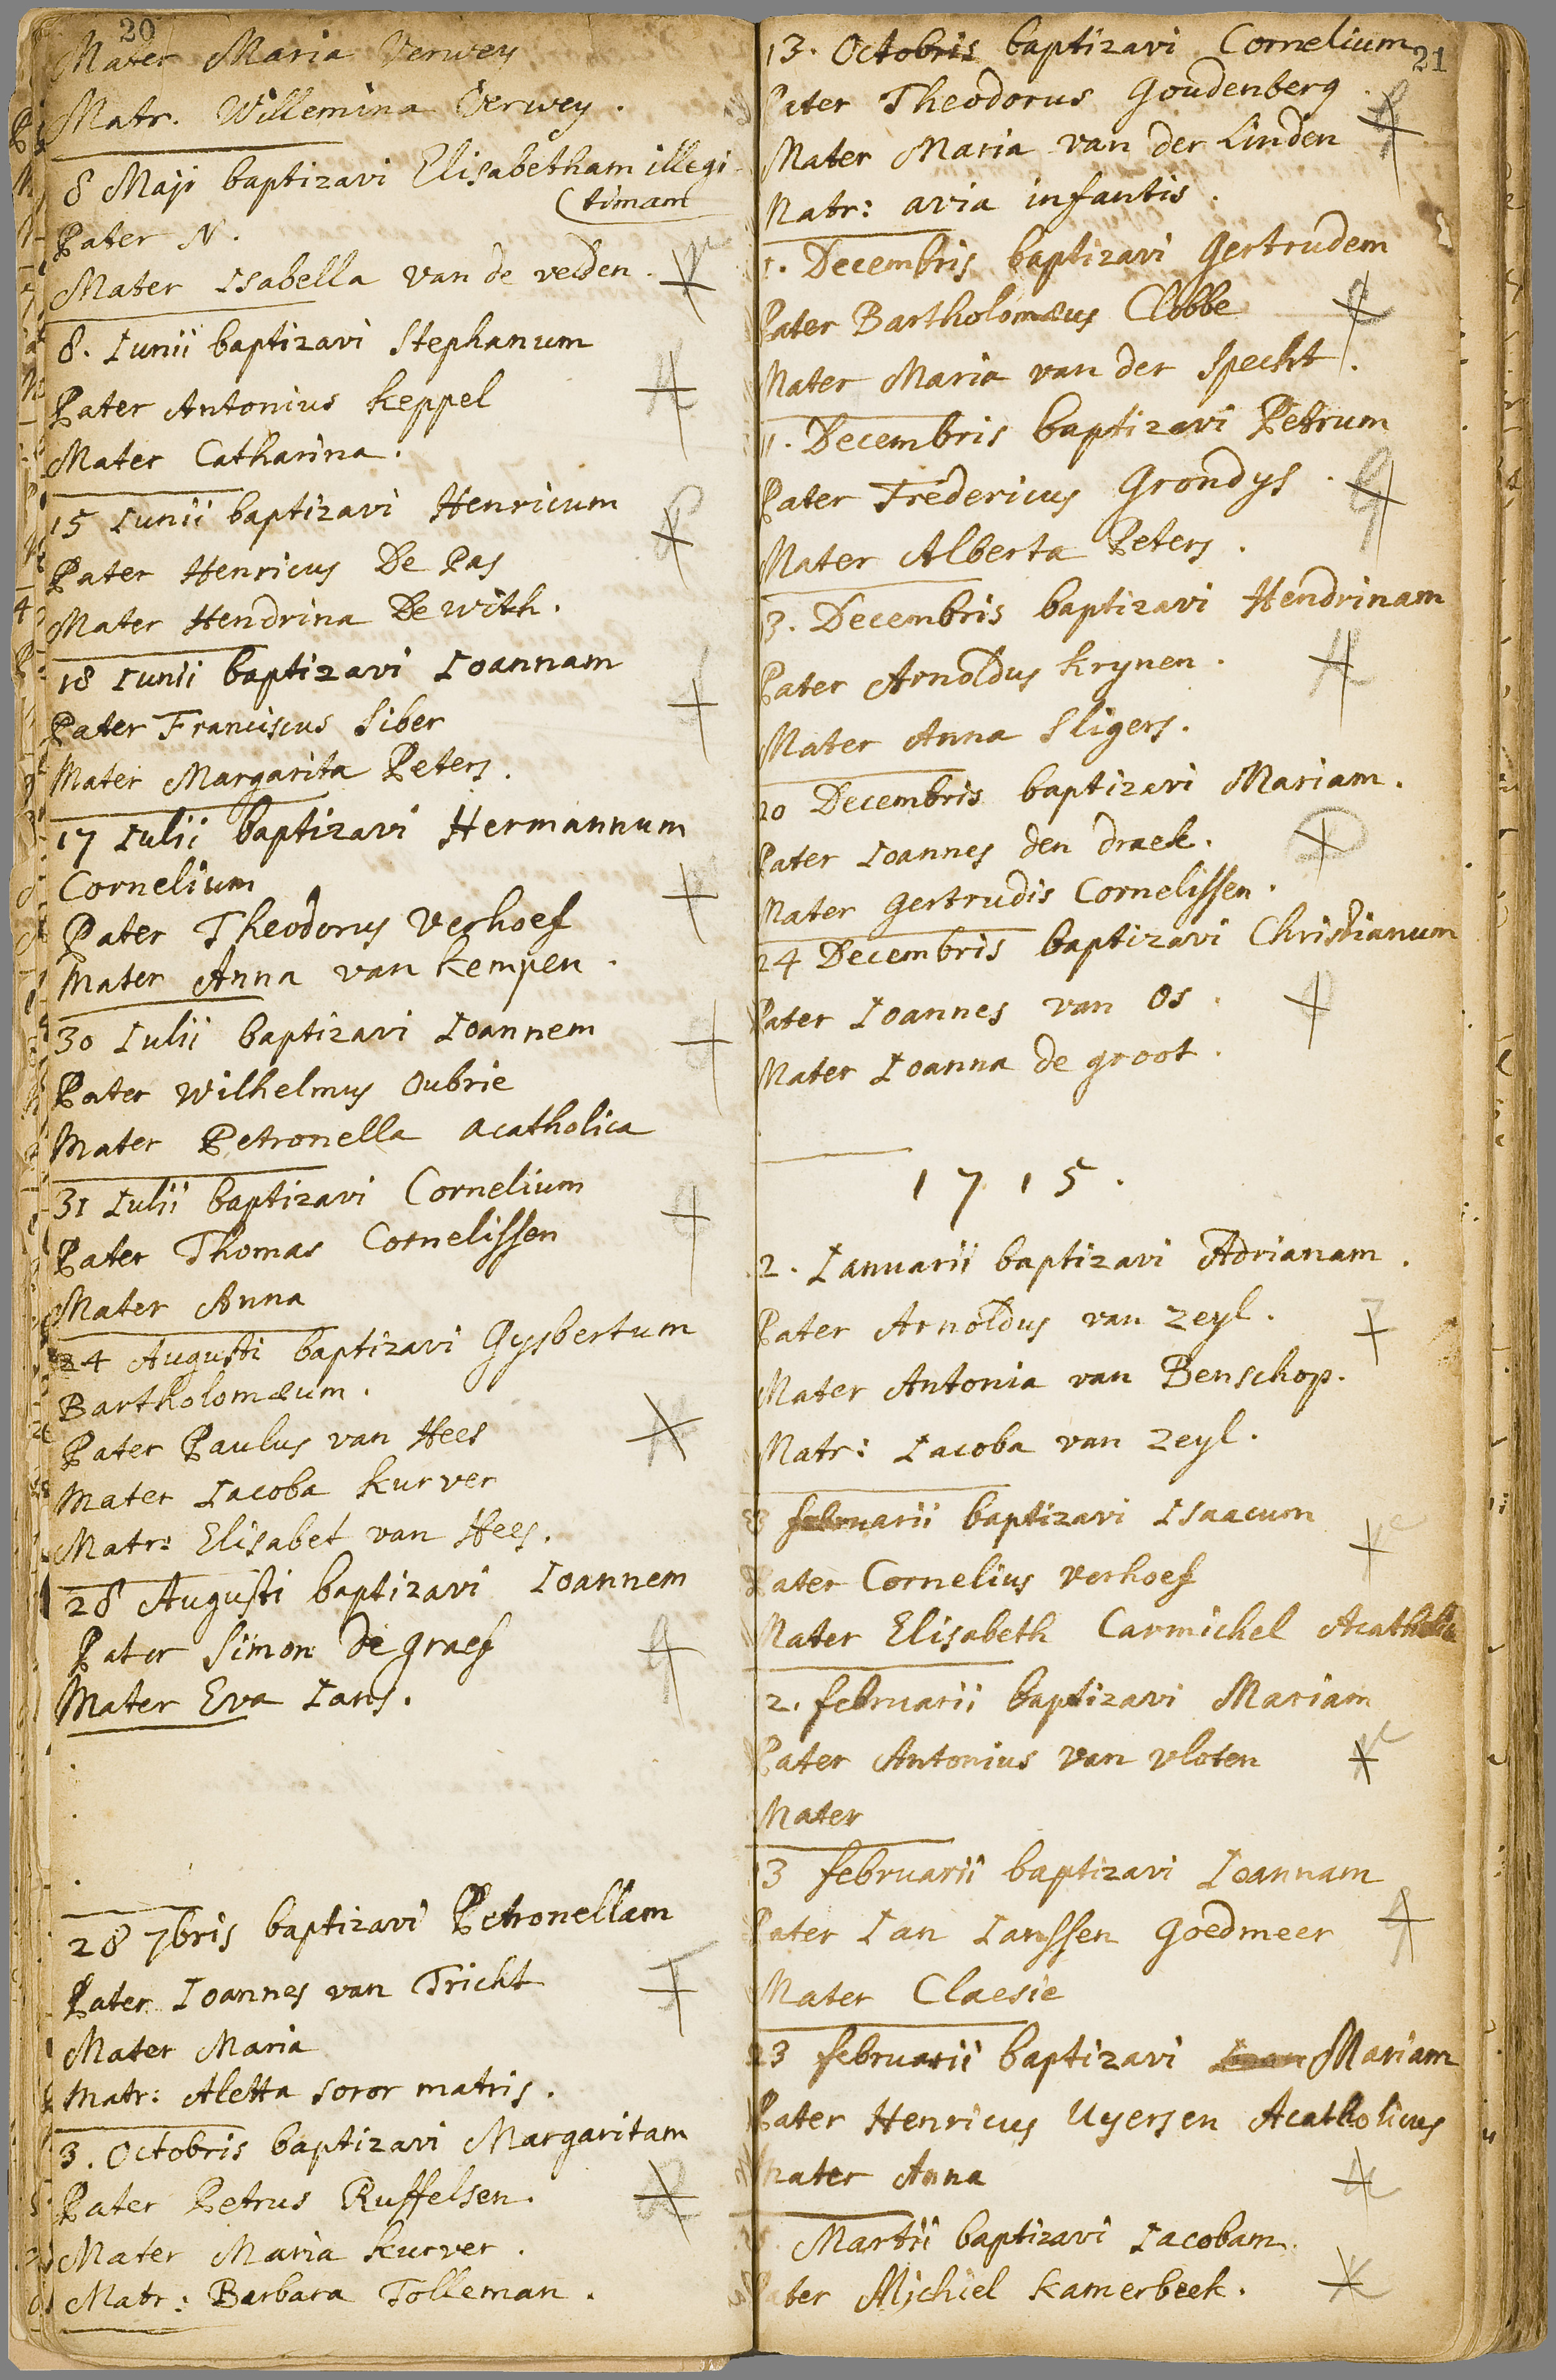 20
Mater Maria Verwey
Matr. Willemina Verwey.
8 Maji baptizavi Elisabetham illegi-
(timam
Pater N.
Mater Isabella van de velden.
8. Iunii baptizavi Stephanum
Pater Antonius Keppel
Mater Catharina.
15 Iunii baptizavi Henricum
Pater Henricus De Pas
Mater Hendrina De With.
18 Iunii baptizavi Ioannam
Pater Franciscus Siber
Mater Margarita Peters.
17 Iulii baptizavi Hermannum
Cornelium
Pater Theodorus Verhoef
Mater Anna van Kempen.
30 Iulii baptizavi Ioannem
Pater Wilhelmus Oubrie
Mater Petronella acatholica
31 Iulii baptizavi Cornelium
Pater Thomas Cornelissen
Mater Anna
24 Augusti baptizavi Gysbertum
Bartholomæum.
Pater Paulus van Hees
Mater Iacoba Kurver
Matr: Elisabet van Hees.
28 Augusti baptizavi Ioannem
Pater Simon de graef
Mater Eva Ians.
28 7bris baptizavi Petronellam
Pater Ioannes van Tricht
Mater Maria
Matr: Aletta soror matris.
3. Octobris baptizavi Margaritam
Pater Petrus Ruffelsen.
Mater Maria Kurver.
Matr: Barbara Tolleman.
21
13. Octobris baptizavi Cornelium
Pater Theodorus Goudenberg.
Mater Maria van der Linden
Matr: avia infantis.
1. Decembris baptizavi Gertrudem
Pater Bartholomæus Clobbe
Mater Maria van der Specht.
11. Decembris baptizavi Petrum
Pater Fredericus Grondys.
Mater Alberta Peters.
13. Decembris baptizavi Hendrinam
Pater Arnoldus Krynen.
Mater Anna Sligers.
20 Decembris baptizavi Mariam.
Pater Ioannes den draek.
Mater Gertrudis Cornelissen.
24 Decembris baptizavi Christianum
Pater Ioannes van Os.
Mater Ioanna de groot.
1715.
2. Ianuarii baptizavi Adrianam.
Pater Arnoldus van zeyl.
Mater Antonia van Benschop.
Matr: Iacoba van zeyl.
februarii baptizavi Isaacum
Pater Cornelius Verhoef
Mater Elisabeth Carmichel
2. februarii baptizavi Mariam
Pater Antonius van vloten
Mater
13 februarii baptizavi Ioannam
Pater Ian Ianssen Goedmeer
Mater Claesie
23 februarii baptizavi Mariam
Pater Henricus Uyersen Acatholicus
Mater Anna
Martii baptizavi Iacobam
Pater Michiel Kamerbeek.